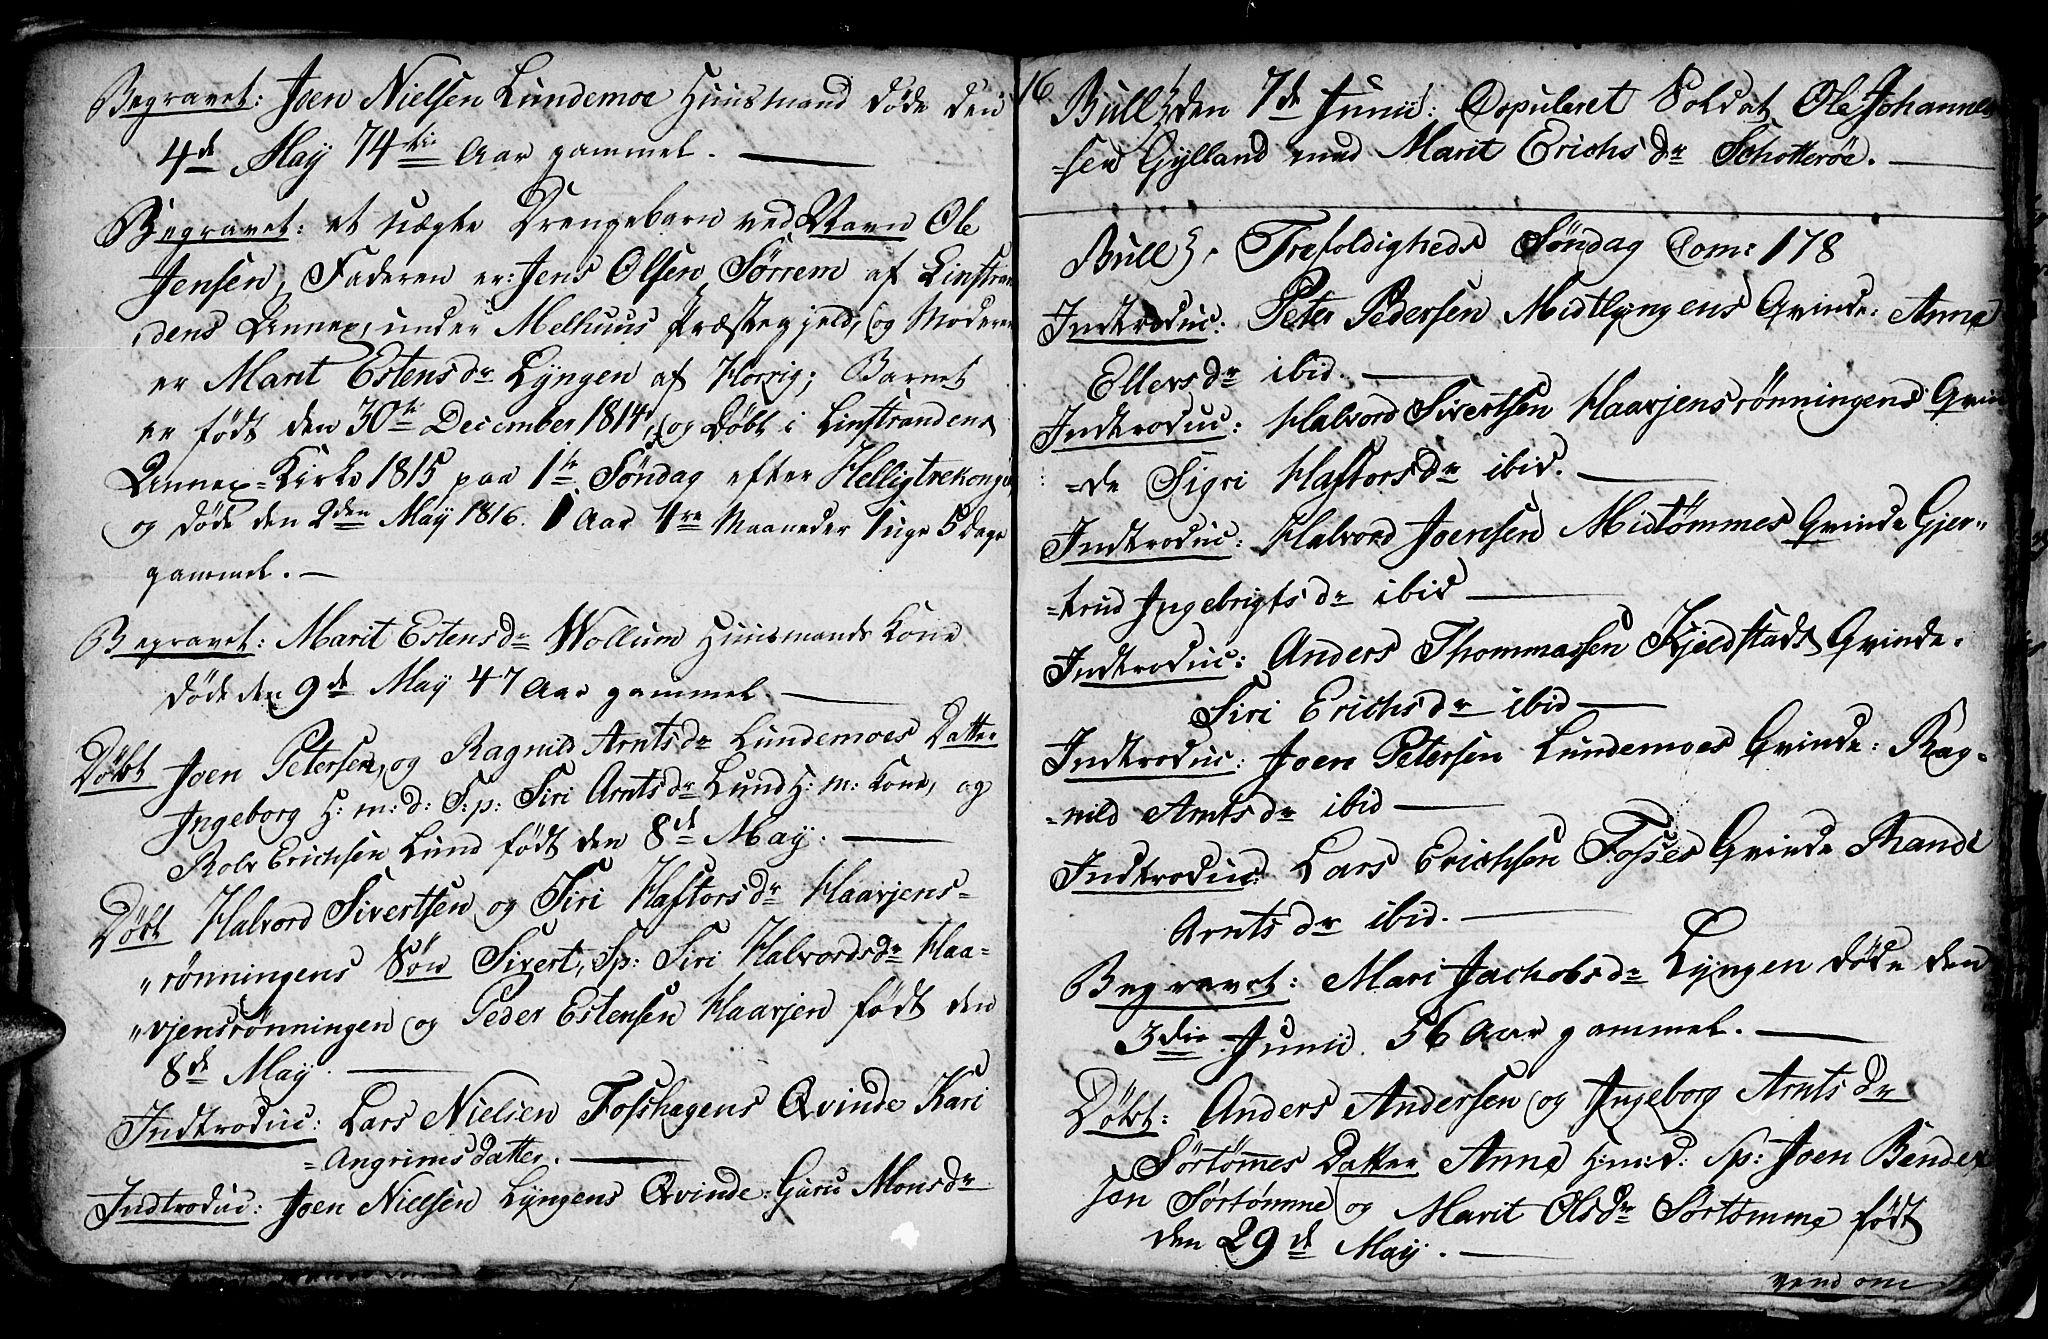 Begravet: Joen Nielsen Lundemoe Huusmand døde den
4de May 74 Aar gammel.
Begravet: et uægte Drengebarn ved Navn Ole
Jensen, Faderen er: Jens Olsen Sørrem af Linstran
dens Annex, under Melhuus Præstegjeld, og Moderen
er Marit Estensdr Lyngen af Horrig; Barnet
er født den 30te December 1814, og Døbt i Linstrandens
Annex=Kirke 1815 paa 1te Søndag efter Helligtrekonger
og døde den 2den May 1816. 1 Aar 4re Maaneder 1 uge 5 Dage
gammel.
Begravet: Marit Estensdr Wollum Huusmands Kone
døde den 9de May 47 Aar gammel.
Døbt Joen Petersen, og Ragnild Arntsdr Lundemoes Datter
Ingeborg H: m: d: S:p: Siri Arntsdr Lund H: m: Kone, og
Rolv Erichsen Lund født den 8de May.
Døbt Halvord Sivertsen og Siri Haftorsdr Haarjens=
"rønningens Søn Sivert, Sp: Siri Halvordsdr Haa=
"rjensrønningen og Peder Estensen Haarjen født den
8de May.
Indtroduc: Lars Nielsen Foshagens Qvinde Kari
=Angrimsdatter.
Indtroduc: Joen Nielsen Lyngens Qvinde: Guru Monsdr
16
Bull} den 7de Junii: Copuleret Soldat Ole Johannes
=sen Gylland med Marit Erichsdr Schotterøe.
Bull}. Trefoldigheds Søndag Com: 178
Indtroduc: Peter Pedersen Midtlyngens Qvinde: Anne
Ellersdr ibid.
Indtroduc: Halvord Sivertsen Haarjensrønningens Qvin
=de Sigri Haftorsdr ibid.
Indtroduc: Halvord Joensen Midtømmes Qvinde Gjer"
=trud Ingebrigtsdr ibid
Indtroduc: Anders Thommassen Kjeldstads Qvinde.
Siri Erichsdr ibid
Indtroduc: Joen Petersen Lundemoes Qvinde: Rag=
=nild Arntsdr ibid
Indtroduc: Lars Erichsen Fosses Qvinde Randi
Arntsdr ibid.
Begravet: Mari Jachobsdr Lyngen døde den
3die Junii. 56 Aar gammel.
Døbt: Anders Andersen og Ingeborg Arntsdr
Sørtømes Datter Anne H:m:d: Sp: Joen Bendix
sen Sørtømme og Marit Olsdr Sørtømme født
den 29de May.
vend om